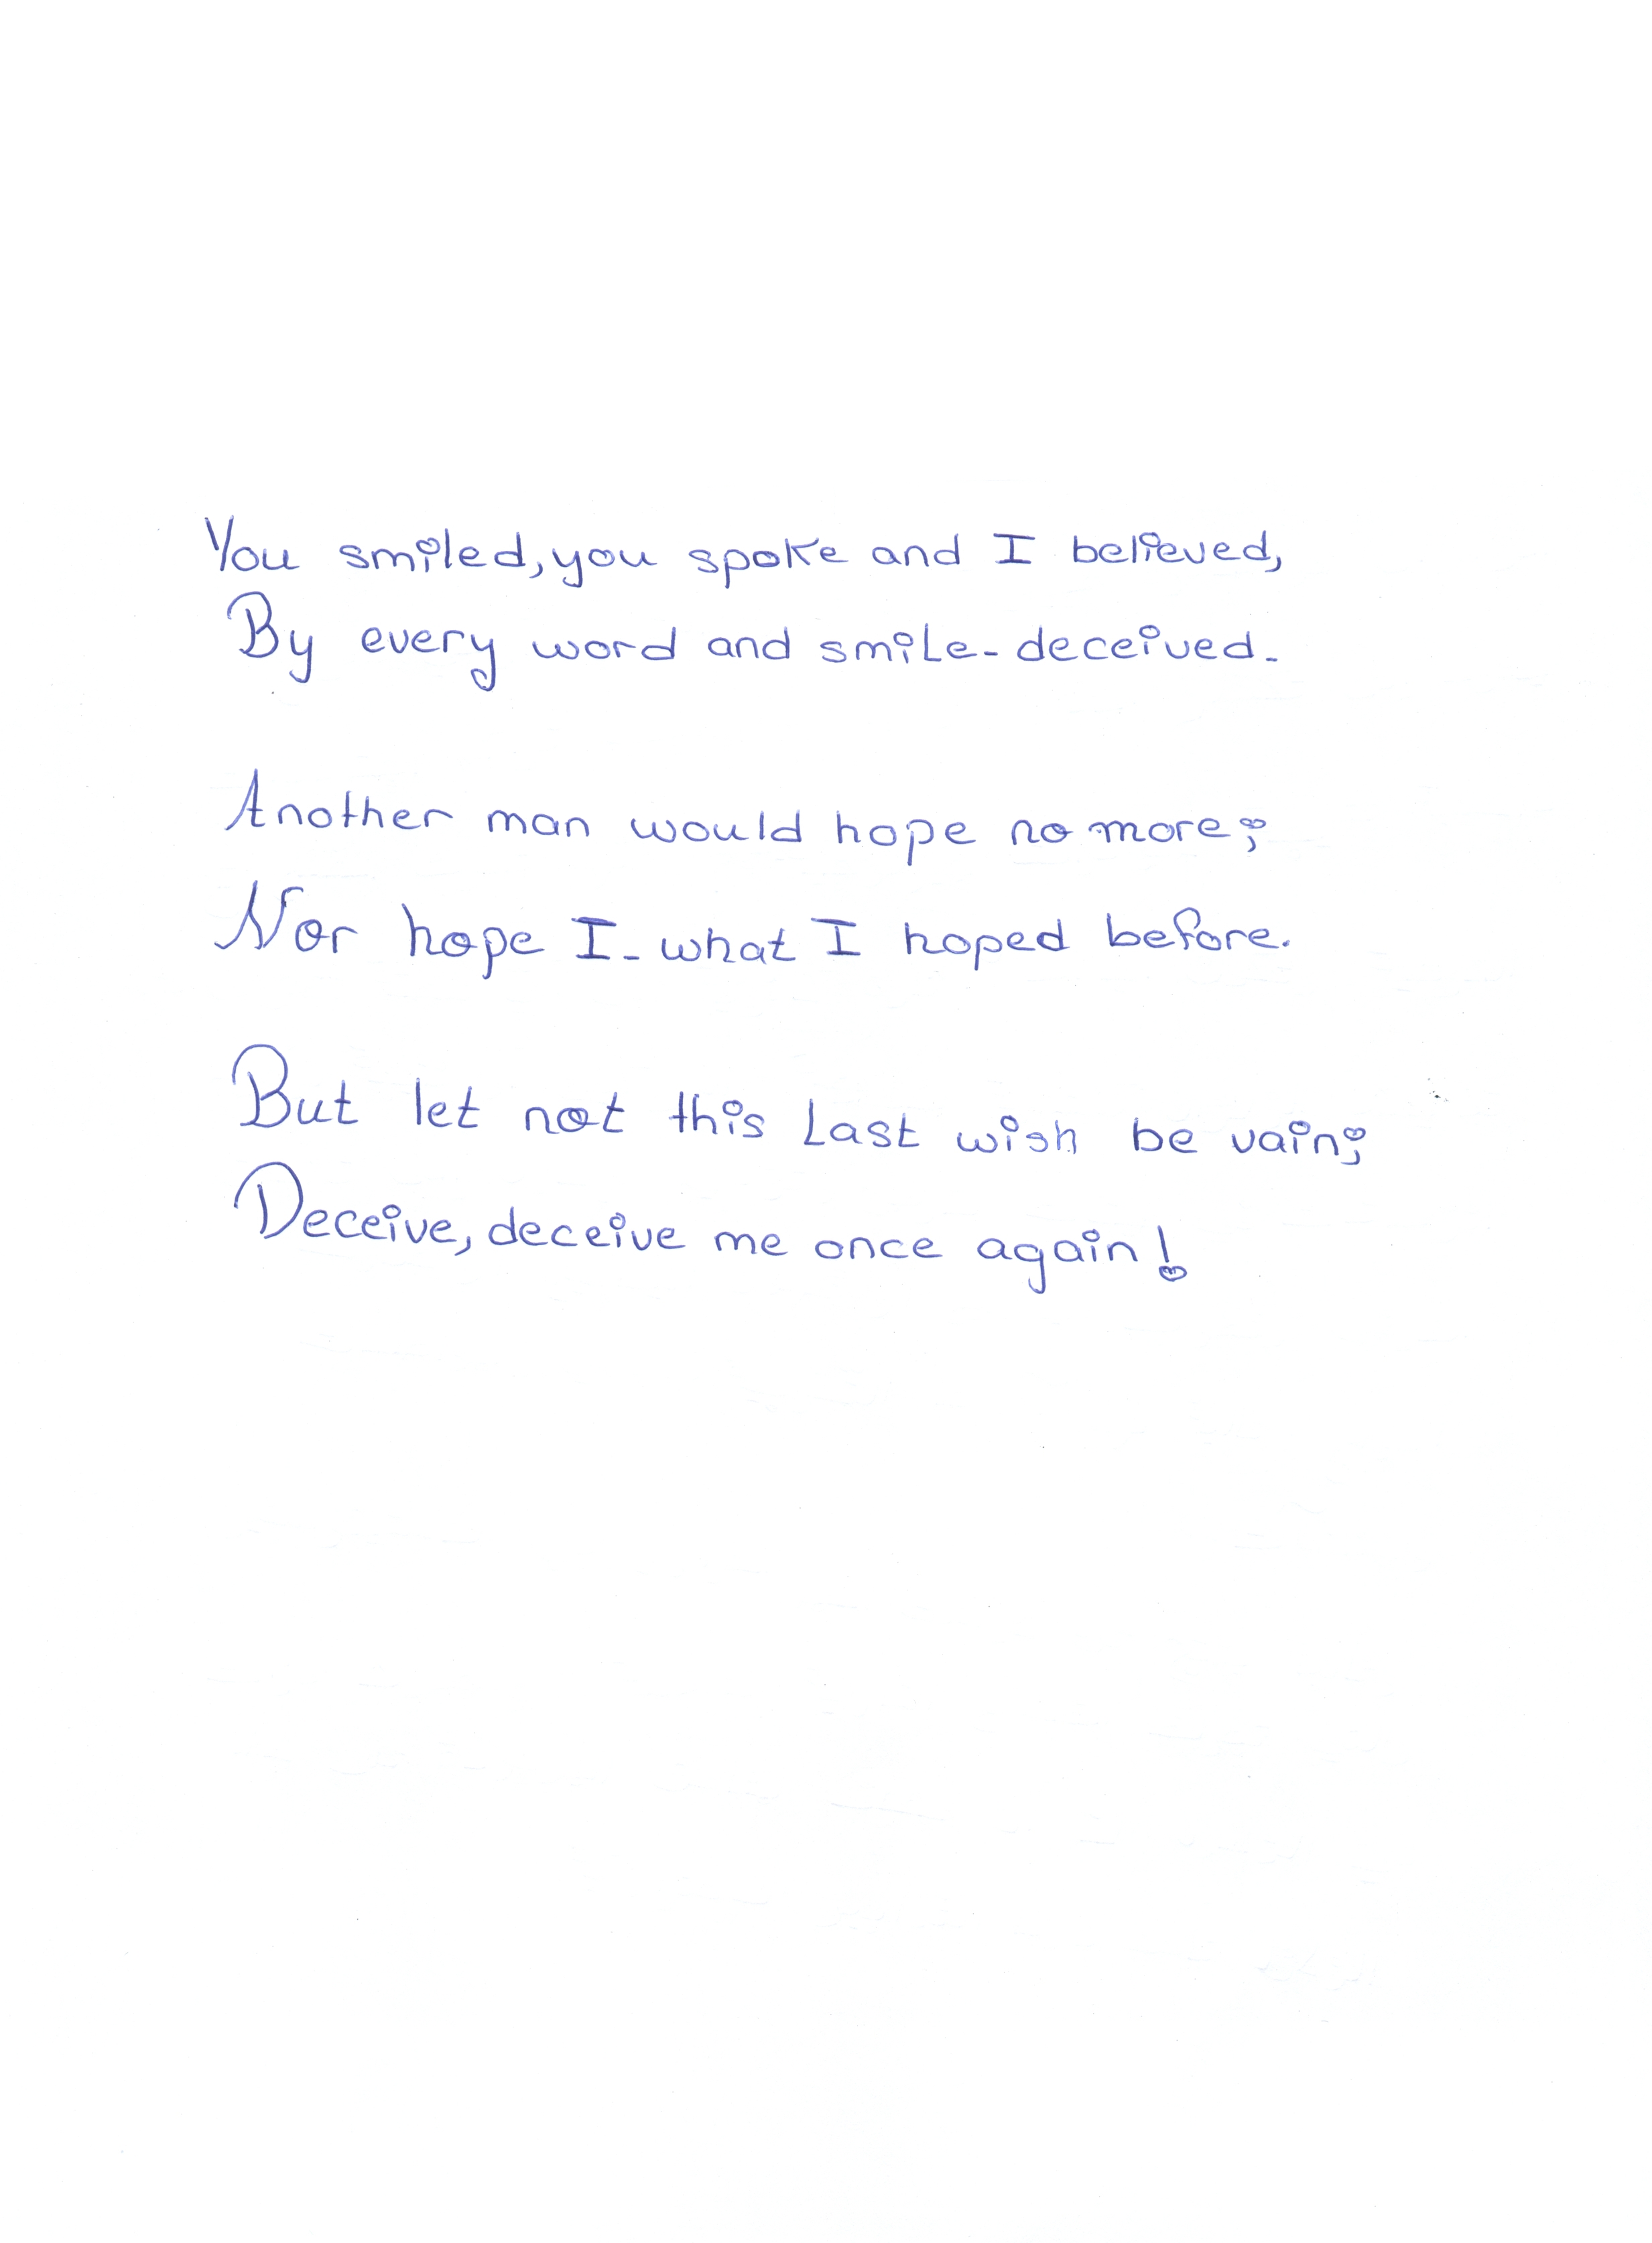 You smiled, you spoke and I believed,
By every word and smile - deceived.
Another man would hope no more;
Nor hope I - what I hoped before.
But let not this last wish be vain;
Deceive, deceive me once again!